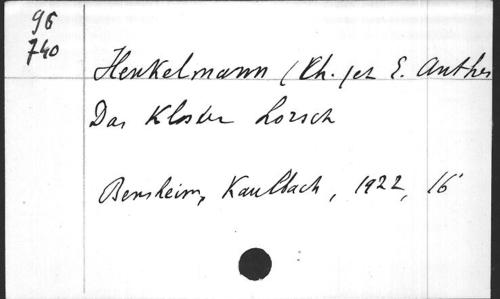 96
740
Henkelmann (Kh.) et E. Anthes
Das Kloster Lorsch
Bensheim, Kaulbach, 1922, 16°